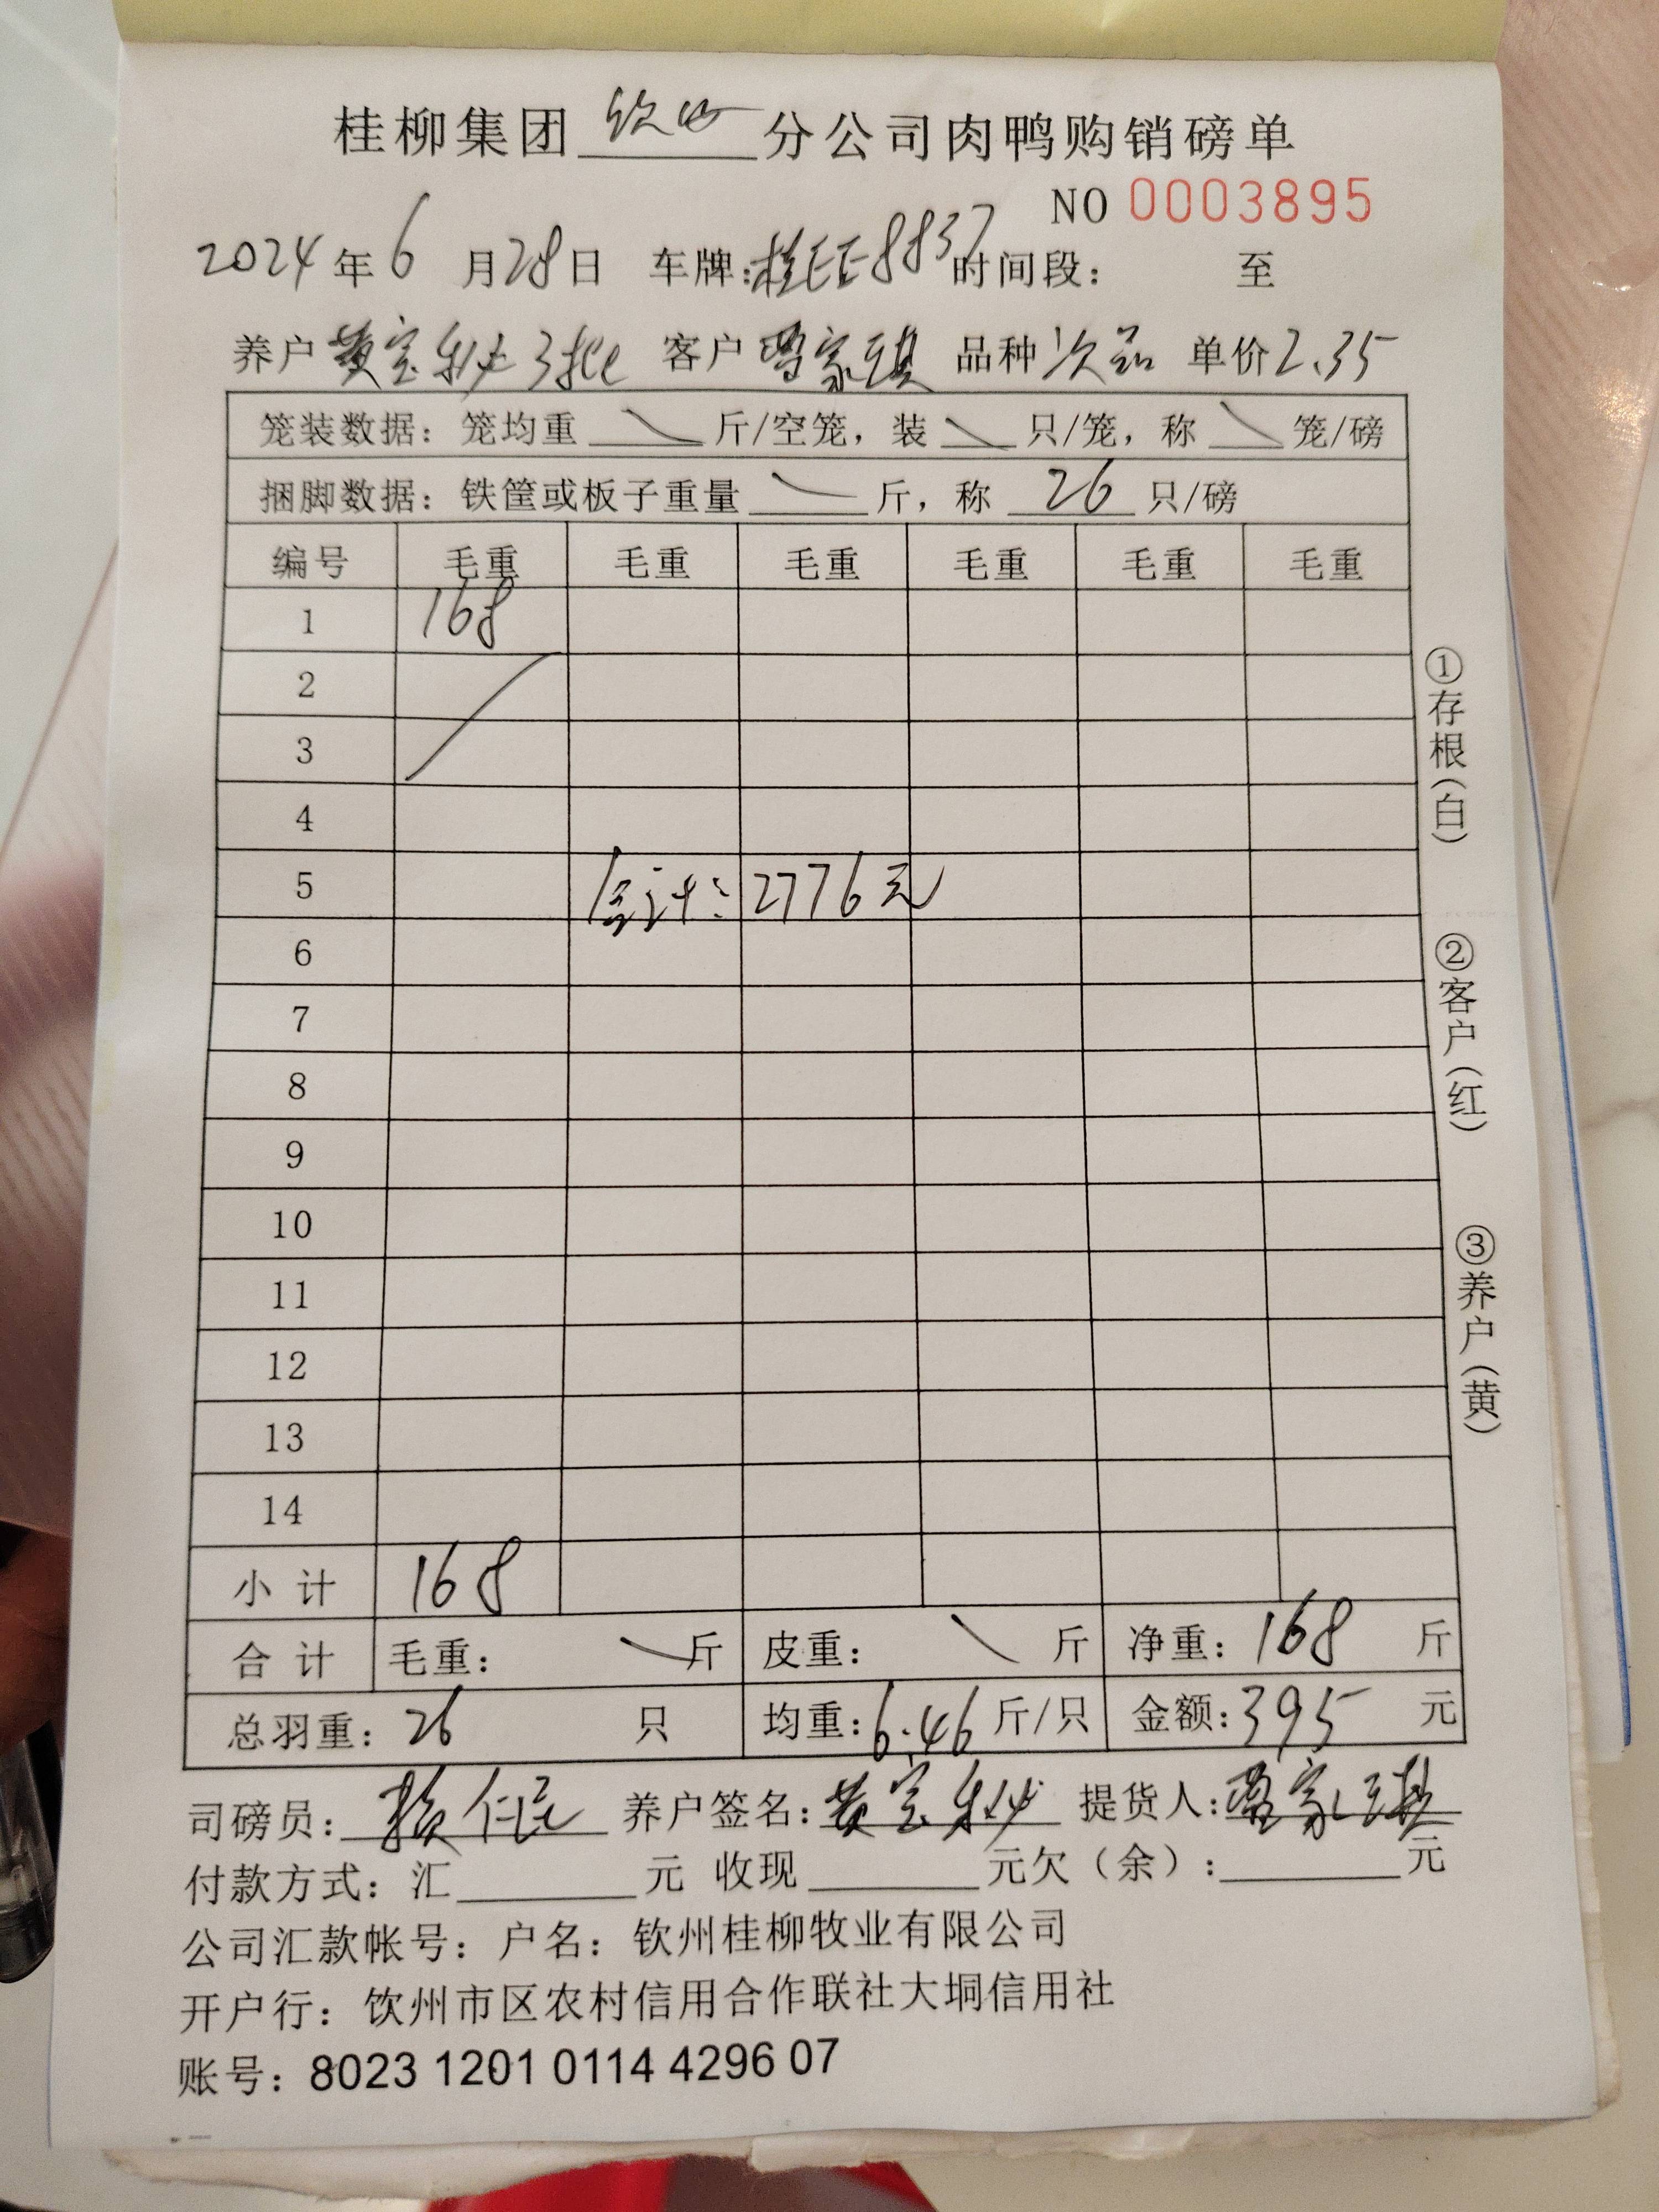 桂柳集团 钦州 分公司肉鸭购销磅单
NO 0003895
2024年6月28日 车牌:桂EE8837 时间段: 至
养户 黄宝秋 3批 客户 曾家琪 品种 次品 单价 2.35
笼装数据: 笼均重 斤/空笼, 装 只/笼, 称 笼/磅
捆脚数据: 铁筐或板子重量 斤, 称 26 只/磅
编号 毛重 毛重 毛重 毛重 毛重 毛重
1 168
2
3
4
5 合计:2776元
6
7
8
9
10
11
12
13
14
小计 168
合计 毛重: 斤 皮重: 斤 净重: 168 斤
总羽重: 26 只 均重: 6.46 斤/只 金额: 395 元
司磅员: 养户签名: 黄宝秋 提货人: 曾家琪
付款方式: 汇 元 收现 元欠(余): 元
公司汇款帐号: 户名: 钦州桂柳牧业有限公司
开户行: 钦州市区农村信用合作联社大垌信用社
账号: 8023 1201 0114 4296 07
①存根(白)
②客户(红)
③养户(黄)